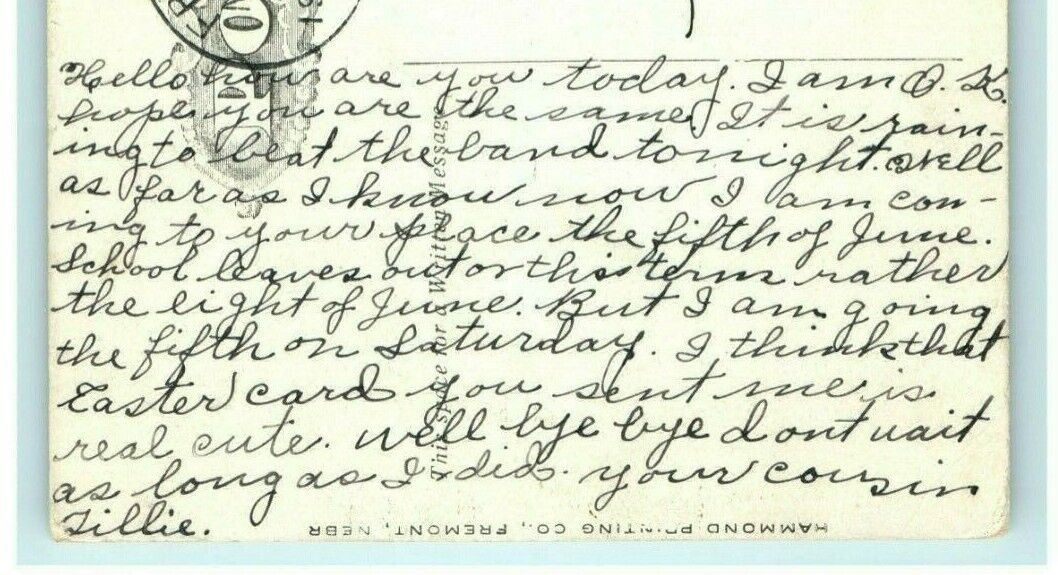 Hello how are you today. I am O. K.
hope you are the same. It is rain-
ing to beat the band tonight. Well
as far as I know now I am con-
ing to your place the fifth of June.
School leaves out or this term rather
the eight of June. But I am going
the fifth on Saturday. I think that
Easter card you sent me is
real cute. well bye bye dont wait
as long as I did. your cousin
Tillie.
This space for Writing Message
HAMMOND PRINTING CO., FREMONT, NEBR